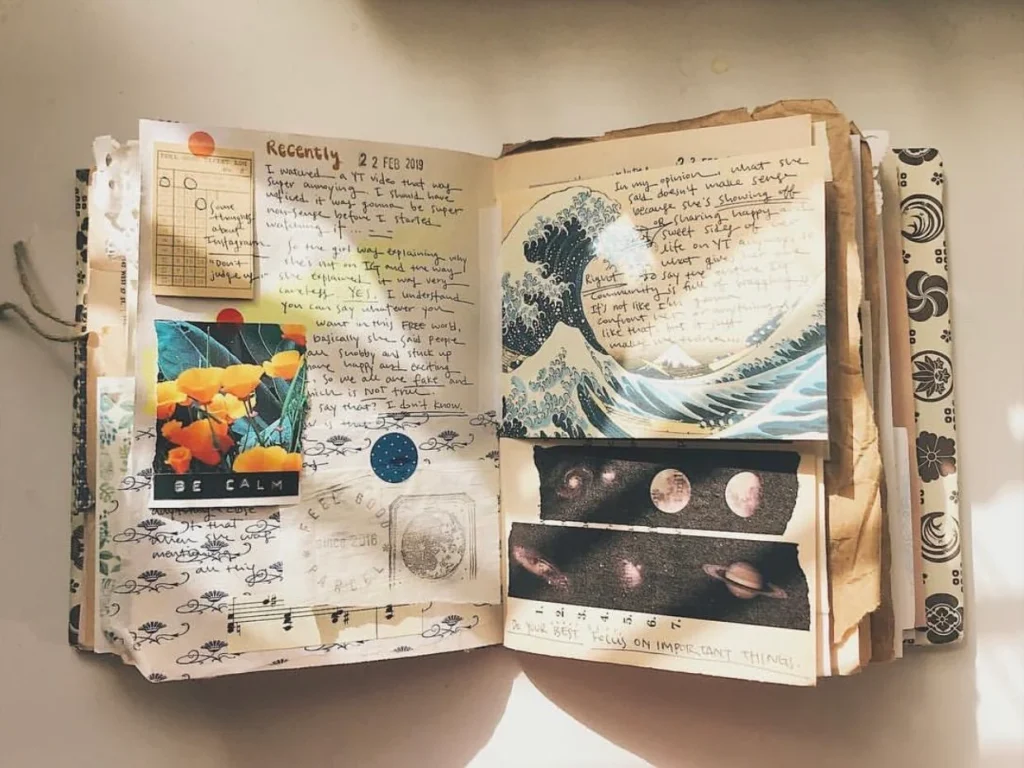 Recently 22 FEB 2019
I watched a YT video that was
super annoying. I should have
noticed it was gonna be super
nonsense before I started
watching it...
So the girl was explaining why
she's not on IG and the way
she explained it was very
careless. YES. I understand
you can say whatever you
want in this FREE world,
basically she said people
are snobby and stuck up
have happy and exciting
so we all are fake and
which is NOT true.
say that? I don't know.
some
things
about
Instagram
"Don't
judge us"
BE CALM
anything close
to that
when she was
mentioning
all this
FEEL GOOD
SINCE 2016
PARCEL
In my opinion, what she
said doesn't make sense
because she's showing off
or sharing happy
sweet sides of
life on YT
what give
Right to say the
community is full of
It's not like I'm gonna
confront
like that but it just
makes me
1. 2. 3. 4. 5. 6. 7.
DO YOUR BEST FOCUS ON IMPORTANT THINGS.